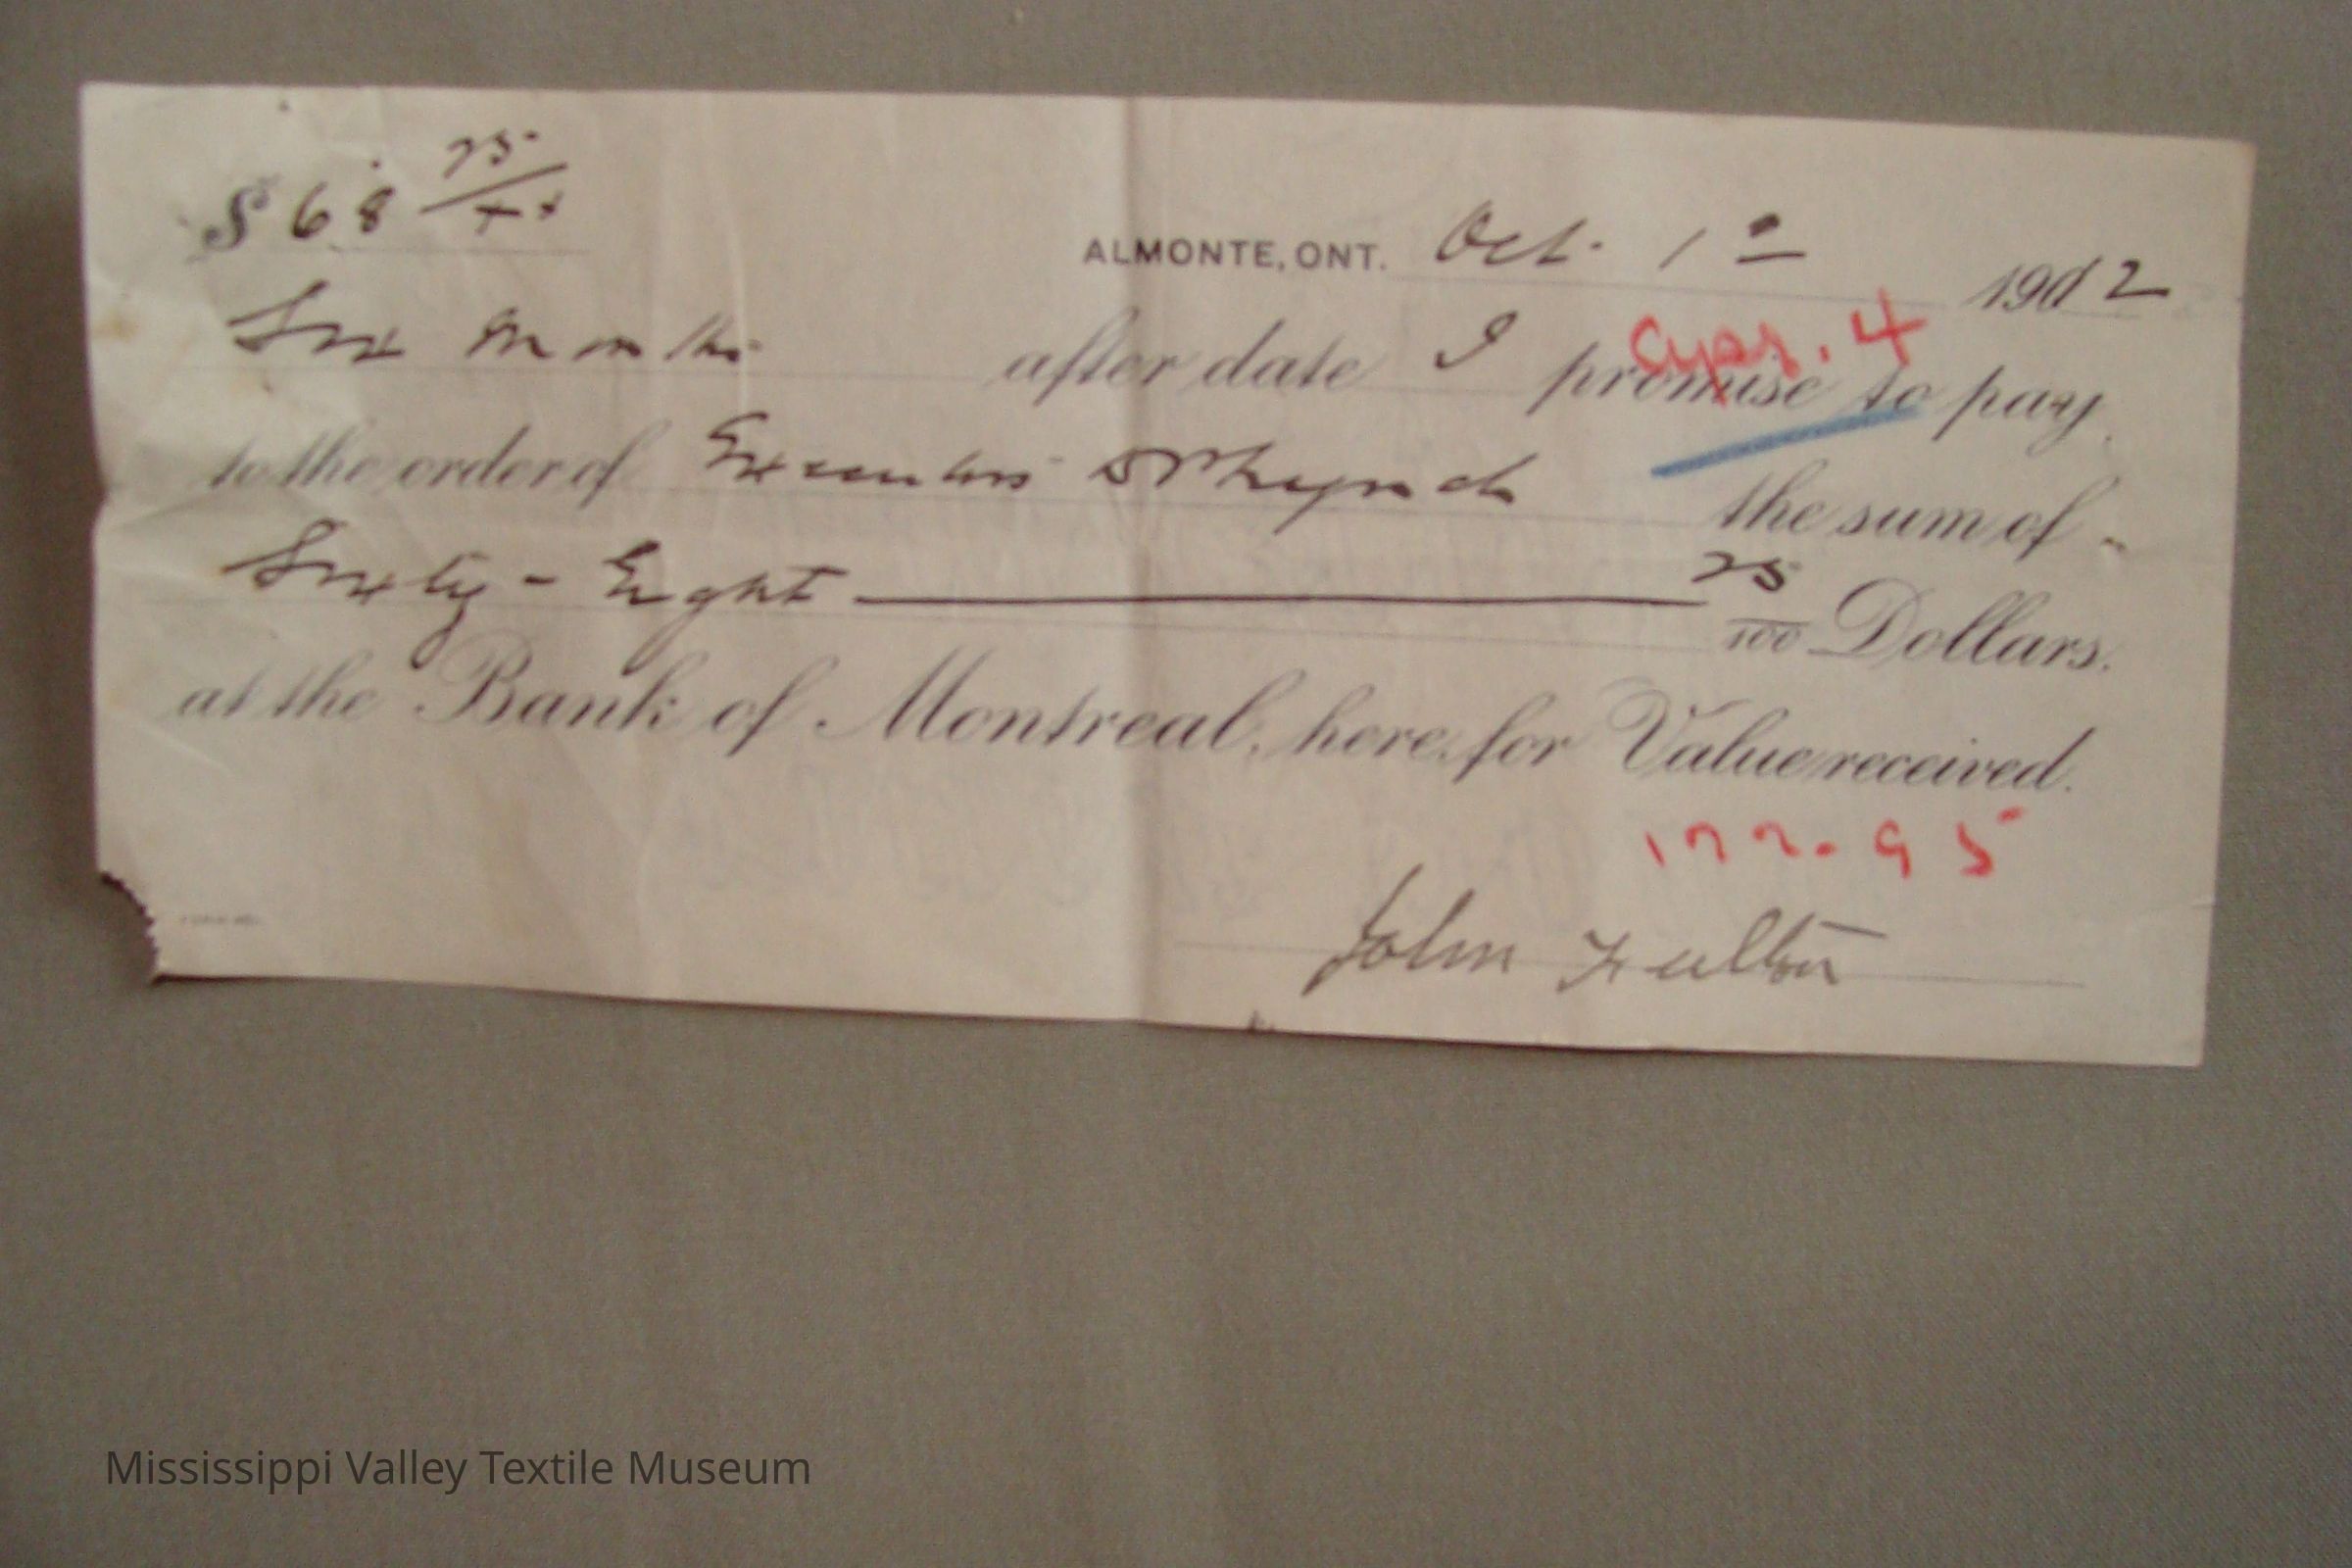 $ 68 75/xx
ALMONTE, ONT. Oct. 1st 1912
Six Months after date I promise to pay
Apr. 4
to the order of Executors the sum of
Sixty-Eight 75/100 Dollars.
at the Bank of Montreal, here, for Value received.
177.95
John Fulton
Mississippi Valley Textile Museum